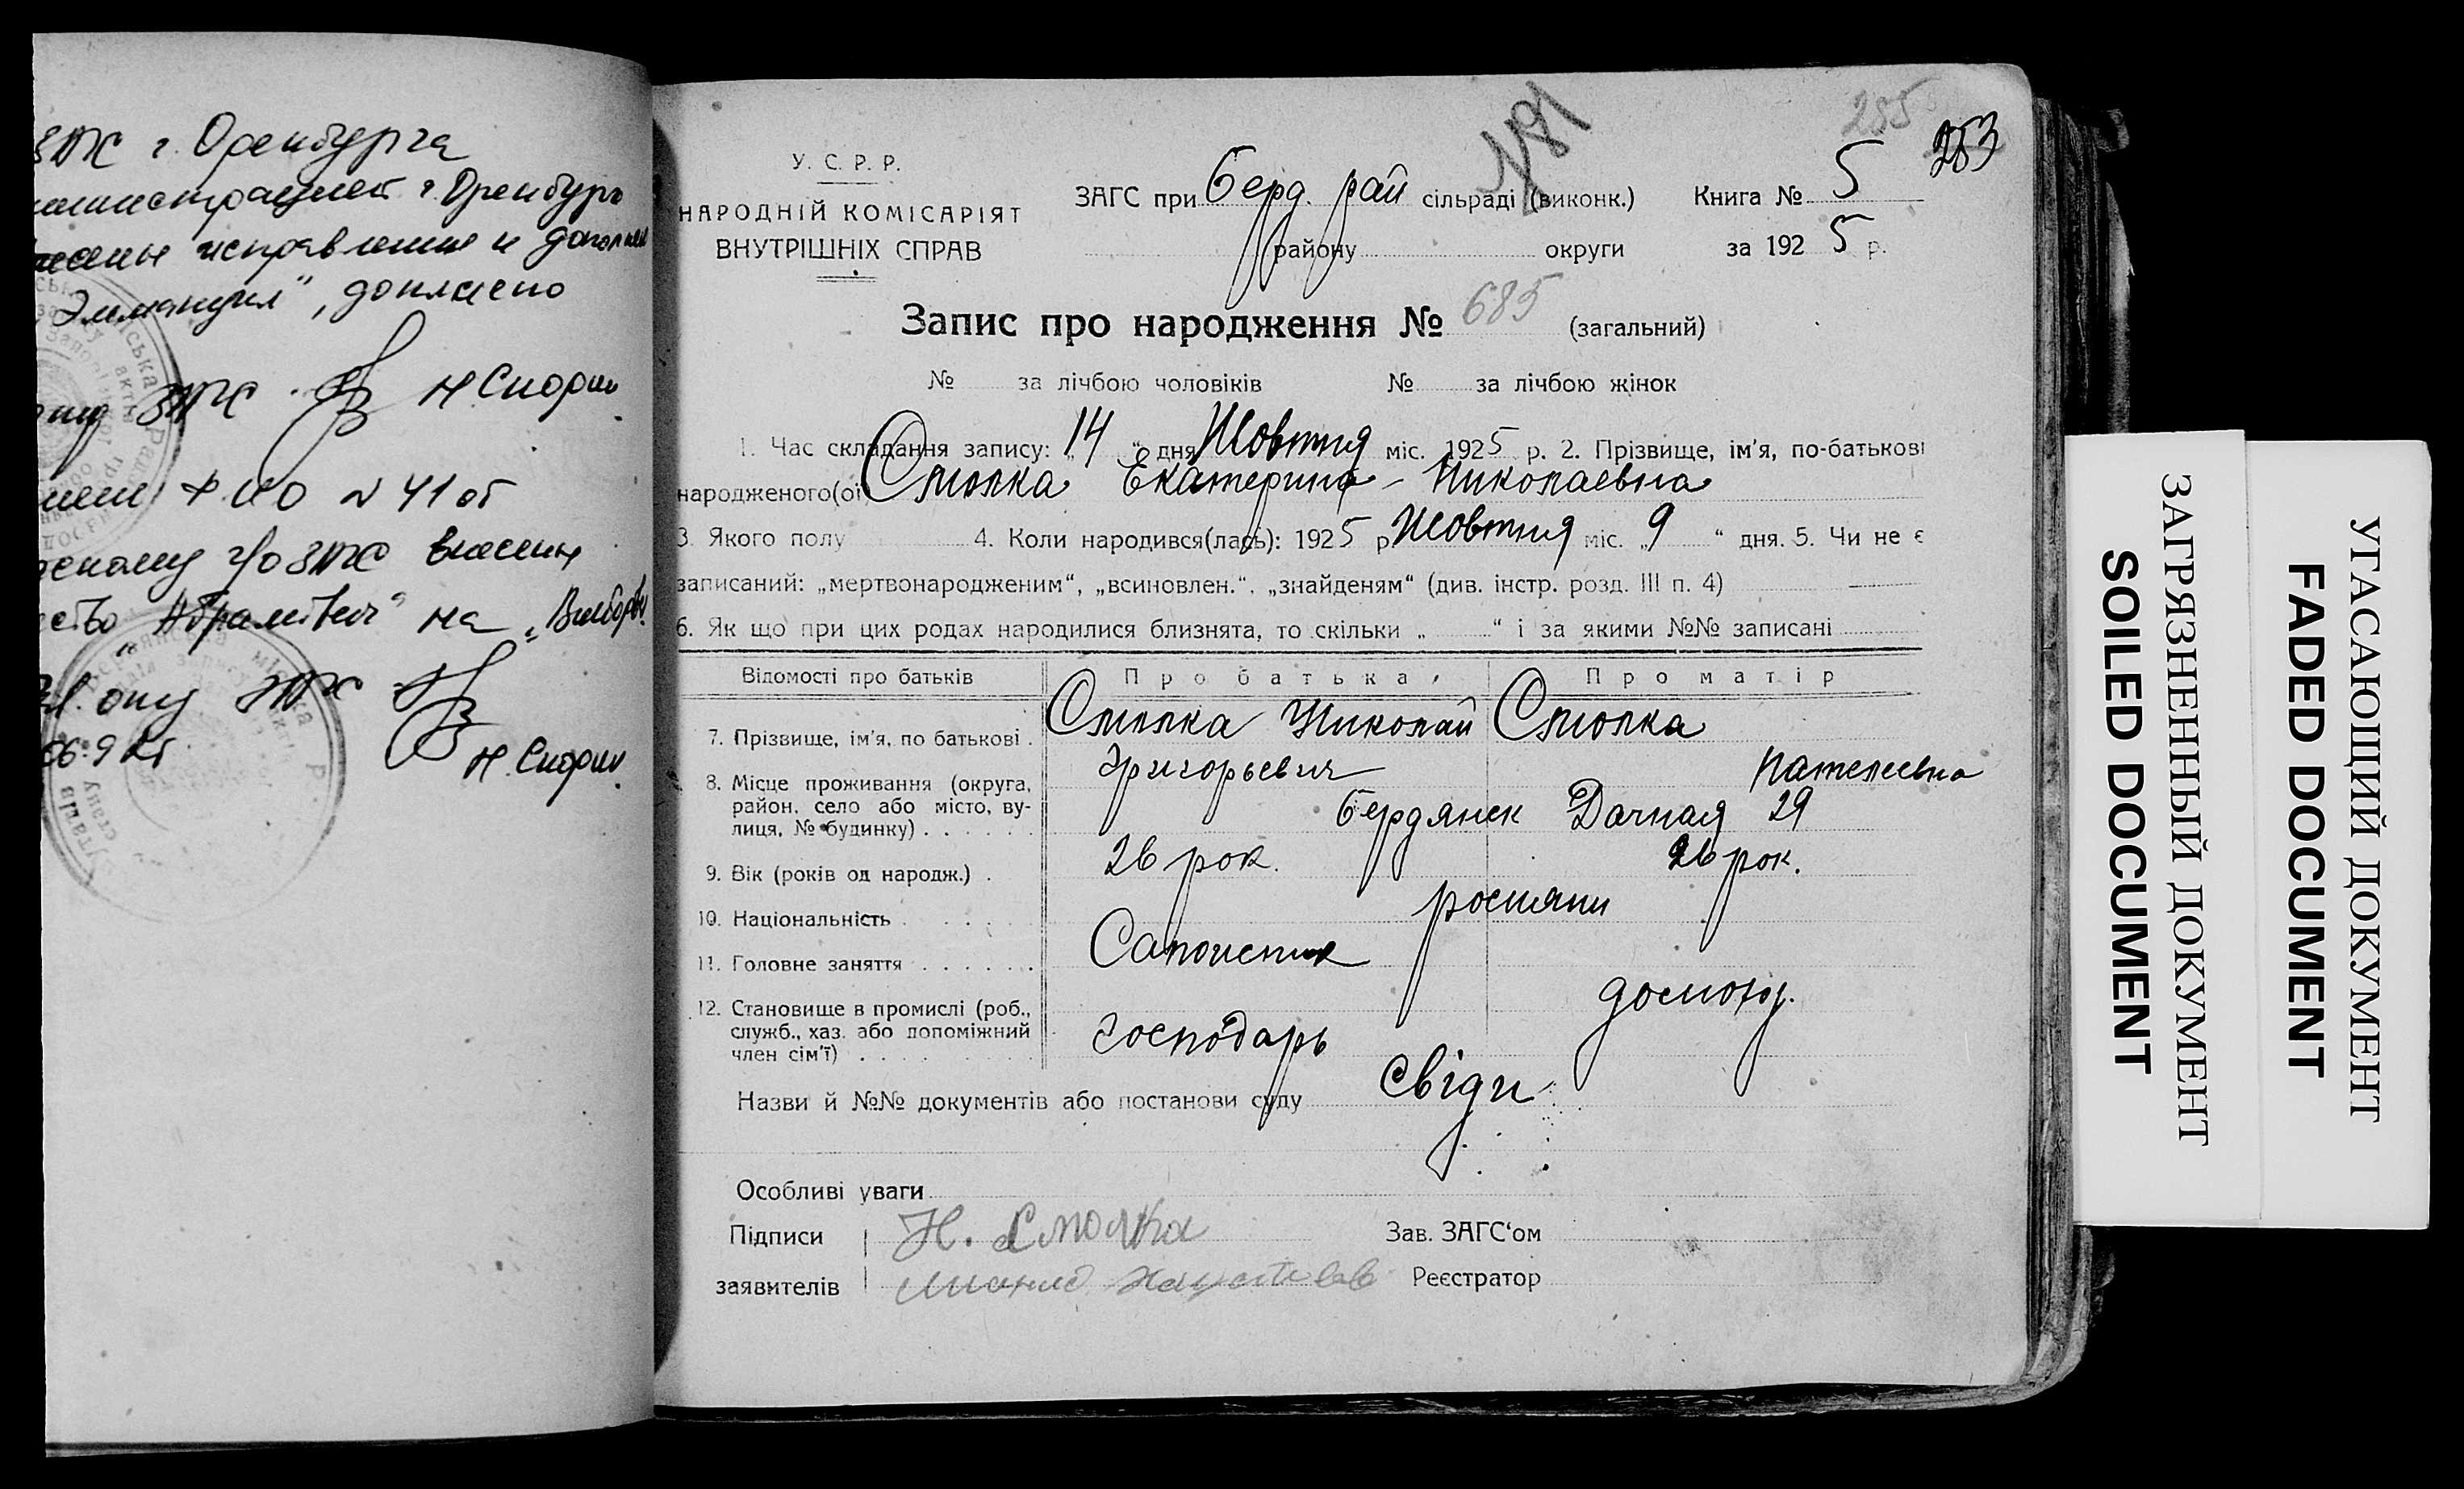 г. Оренбурга
г. Оренбург
исправления и
"Эммануил", дописано
ЗАГС Н Скорик
ФИО N 41 от
г/о ЗАГС внесены
"Абрамович" на
ЗАГС
Н. Скорик
№81
285
253
У. С. Р. Р.
НАРОДНІЙ КОМІСАРІЯТ
ВНУТРІШНІХ СПРАВ
ЗАГС при Берд. рай сільраді (виконк.) Книга № 5
району округи за 1925 р.
Запис про народження № 685 (загальний)
№ за лічбою чоловіків № за лічбою жінок
1. Час складання запису: „14“ дня Жовтня міс. 1925 р. 2. Прізвище, ім'я, по-батькові
народженого(ої) Смолка Екатерина - Николаевна
3. Якого полу 4. Коли народився(лась): 1925 р Жовтня міс. „9“ дня. 5. Чи не є
записаний: „мертвонародженим“, „всиновлен.“, „знайденям“ (див. інстр. розд. III п. 4)
6. Як що при цих родах народилися близнята, то скільки „ “ і за якими №№ записані
Відомості про батьків Про батька Про матір
7. Прізвище, ім'я, по батькові . Смолка Николай Григорьевич Смолка
8. Місце проживання (округа,
район, село або місто, ву-
лиця, № будинку) . . . . . . Бердянск Дачная 29
9. Вік (років од народж.) . 26 рок. 26 рок.
10. Національність . . . . . росіяни
11. Головне заняття . . . . . . Сапожник
12. Становище в промислі (роб.,
служб., хаз. або допоміжний
член сім'ї) . . . . . . господарь домогосп.
Назви й №№ документів або постанови суду свідки
Особливі уваги
Підписи Н. Смолка Зав. ЗАГС‘ом
заявителів Реєстратор
ЗАГРЯЗНЕННЫЙ ДОКУМЕНТ
SOILED DOCUMENT
УГАСАЮЩИЙ ДОКУМЕНТ
FADED DOCUMENT